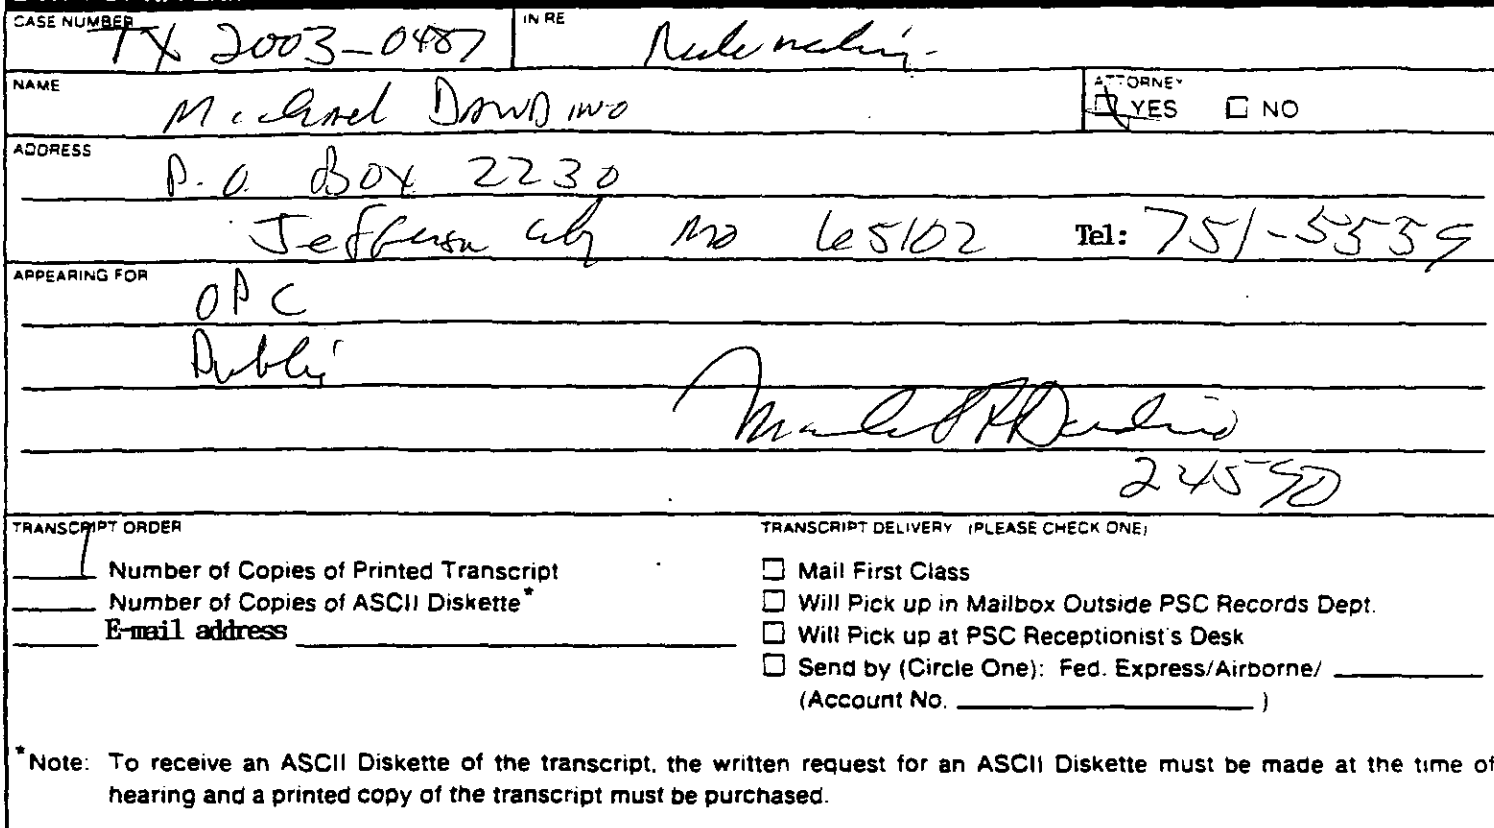 CASE NUMBER TX 2003-0487 IN RE Rulemaking
NAME Michael DANDINO ATTORNEY ☑ YES ☐ NO
ADDRESS P.O. Box 2230
Jefferson City MO 65102 Tel: 751-5559
APPEARING FOR OPC
Public
24590
TRANSCRIPT ORDER
1 Number of Copies of Printed Transcript
Number of Copies of ASCII Diskette*
E-mail address
TRANSCRIPT DELIVERY (PLEASE CHECK ONE)
☐ Mail First Class
☐ Will Pick up in Mailbox Outside PSC Records Dept.
☐ Will Pick up at PSC Receptionist's Desk
☐ Send by (Circle One): Fed. Express/Airborne/
(Account No. )
*Note: To receive an ASCII Diskette of the transcript, the written request for an ASCII Diskette must be made at the time of
hearing and a printed copy of the transcript must be purchased.